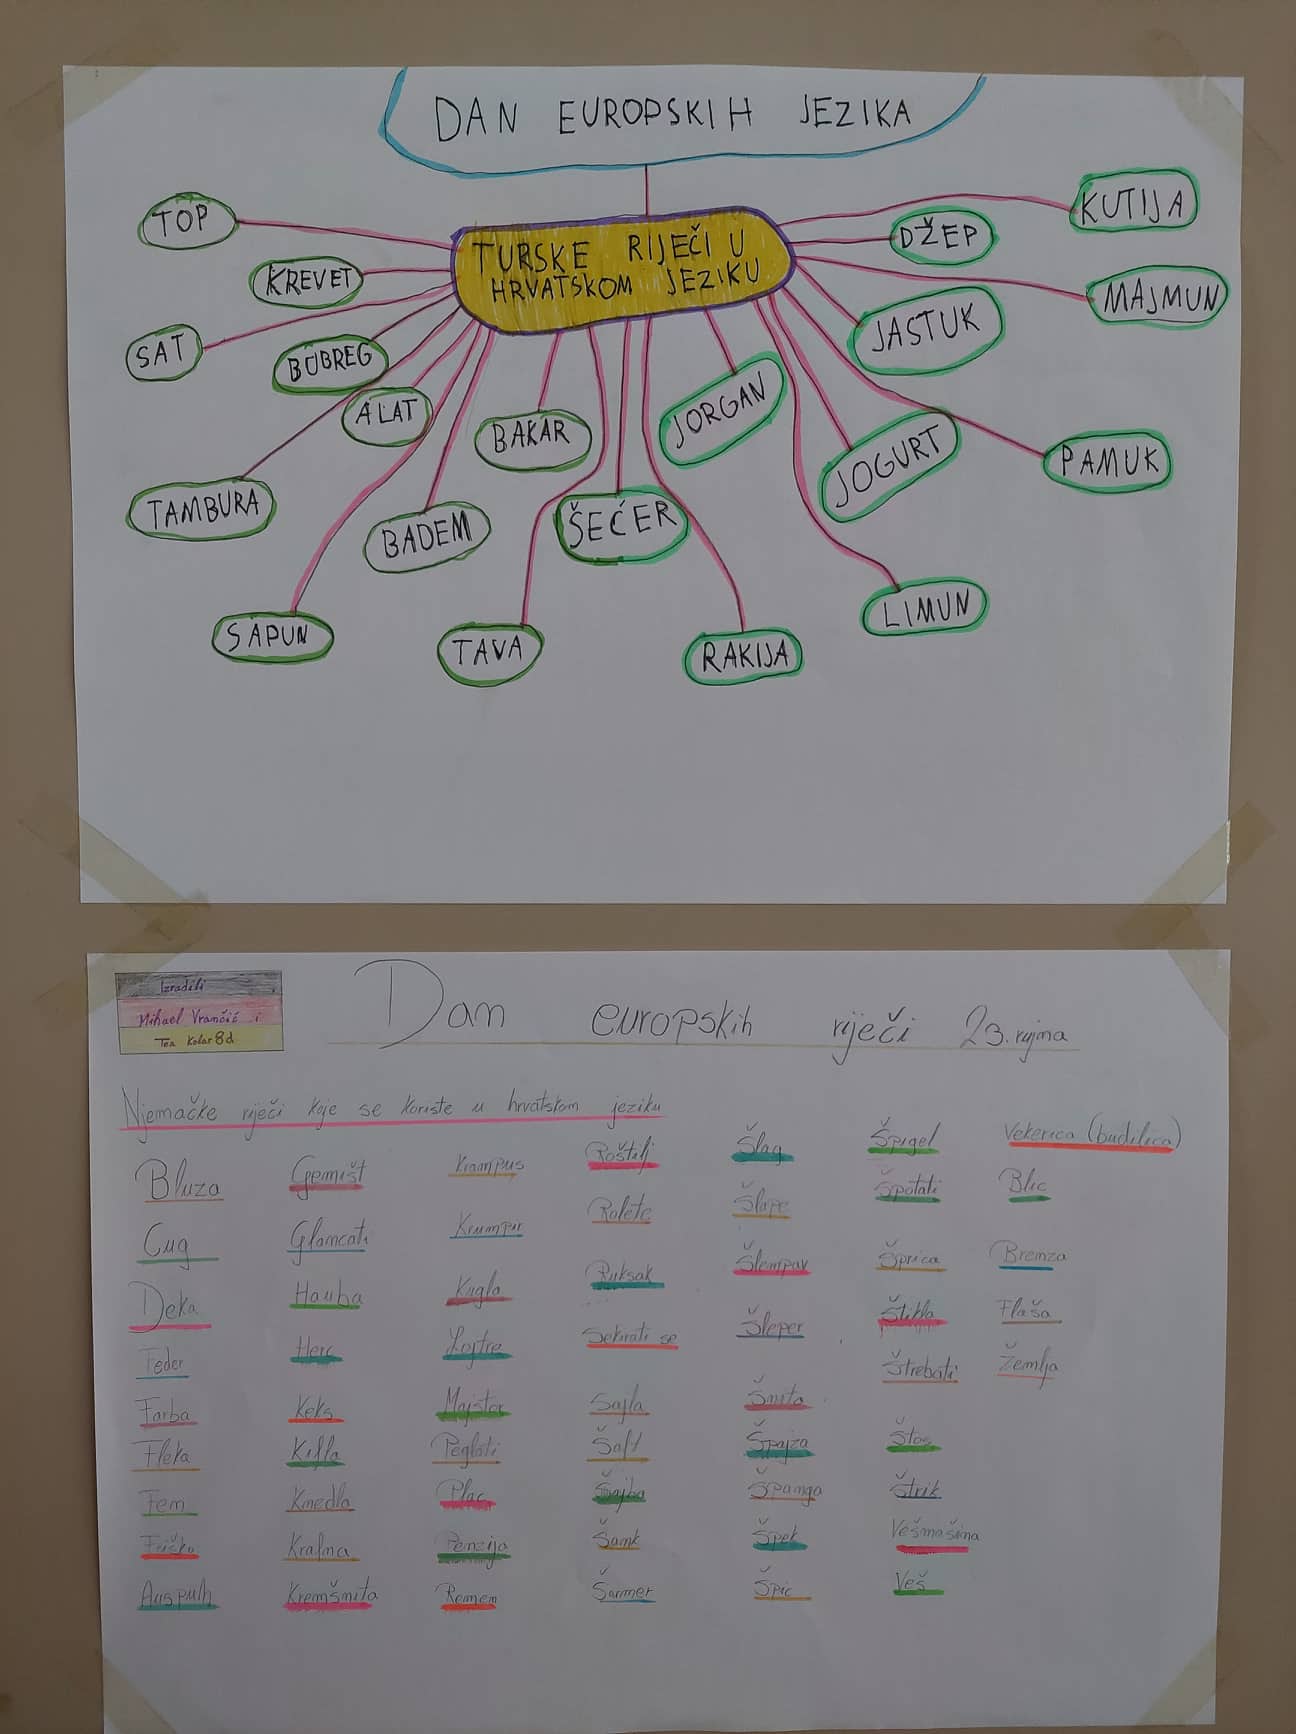 DAN EUROPSKIH JEZIKA
TURSKE RIJEČI U
HRVATSKOM JEZIKU
TOP
KREVET
SAT
BUBREG
ALAT
TAMBURA
BADEM
SAPUN
BAKAR
TAVA
ŠEĆER
RAKIJA
JORGAN
LIMUN
JOGURT
JASTUK
PAMUK
MAJMUN
DŽEP
KUTIJA
Izradili
Mihael Vrančić i
Tea Kolar 8d
Dan europskih riječi 23. rujna
Njemačke riječi koje se koriste u hrvatskom jeziku
Bluza
Cug
Deka
Feder
Farba
Fleka
Fem
Friško
Auspuh
Gemišt
Glancati
Hauba
Herc
Keks
Kifla
Knedla
Krafna
Kremšnita
Krampus
Krumpir
Kugla
Lojtre
Majstor
Peglati
Plac
Penzija
Remen
Roštilj
Rolete
Ruksak
Sekirati se
Sajla
Šaft
Šajba
Šank
Šarmer
Šlag
Šlape
Šlempav
Šleper
Šnita
Špajza
Španga
Špek
Špic
Špigel
Špotati
Šprica
Štikla
Štrebati
Štos
Štrik
Vešmašina
Veš
Vekerica (budilica)
Blic
Bremza
Flaša
Žemlja